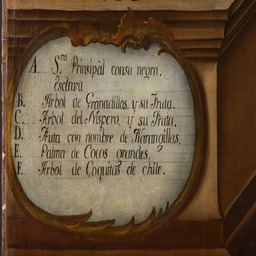 A... S.ra Principal con su negra.
Esclava
B... Arbol de Granadillas, y su fruta.
C... Arbol del Nispero, y su fruta.
D... Fruta con nombre de Narangillas.
E... Palma de Cocos grandes.
F... Arbol de Coquitos de chile.